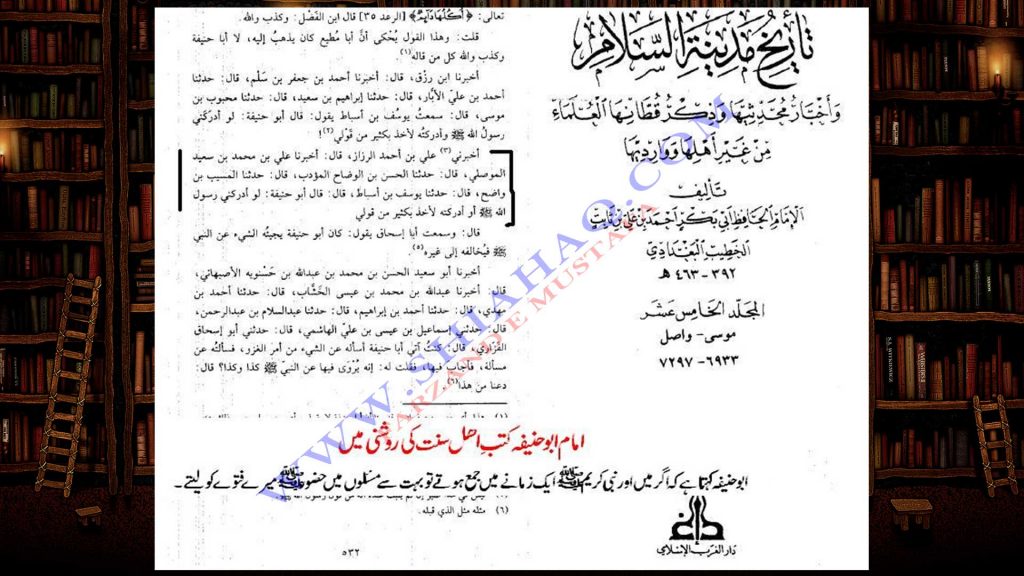 تأريخ مدينة السلام
وأخبار محدثيها وذكر قطانها العلماء
من غير أهلها ووارديها
تأليف
الإمام الحافظ أبي بكر أحمد بن علي بن ثابت
الخطيب البغدادي
٣٩٢ - ٤٦٣ هـ
المجلد الخامس عشر
موسى - واصل
٦٩٣٣ - ٧٢٩٧
دار الغرب الإسلامي
تعالى: ﴿أُكُلُهَا دَآئِمٌ﴾ [الرعد ٣٥] قال ابن الفضل: وكذب والله.
قلت: وهذا القول يُحكى أنَّ أبا مُطيع كان يذهبُ إليه، لا أبا حنيفة
وكذب والله كل من قاله(١).
أخبرنا ابن رزق، قال: أخبرنا أحمد بن جعفر بن سَلْم، قال: حدثنا
أحمد بن علي الأبار، قال: حدثنا إبراهيم بن سعيد، قال: حدثنا محبوب بن
موسى، قال: سمعتُ يوسف بن أسباط يقول: قال أبو حنيفة: لو أدركَني
رسولُ الله ﷺ وأدركتُه لأخذَ بكثير من قَوْلي(٢)!
أخبرني(٣) علي بن أحمد الرزاز، قال: أخبرنا علي بن محمد بن سعيد
الموصلي، قال: حدثنا الحسن بن الوضاح المؤدب، قال: حدثنا المسيب بن
واضح، قال: حدثنا يوسف بن أسباط، قال: قال أبو حنيفة: لو أدركني رسول
الله ﷺ أو أدركته لأخذ بكثير من قولي
قال: وسمعت أبا إسحاق يقول: كان أبو حنيفة يجيئُه الشيء عن النبي
ﷺ فيُخالفه إلى غيره(٥)
أخبرنا أبو سعيد الحسن بن محمد بن عبدالله بن حَسْنويه الأصبهاني،
قال: أخبرنا عبدالله بن محمد بن عيسى الخَشَّاب، قال: حدثنا أحمد بن
مهدي، قال: حدثنا أحمد بن إبراهيم، قال: حدثنا عبدالسلام بن عبدالرحمن،
قال: حدثني إسماعيل بن عيسى بن علي الهاشمي، قال: حدثني أبو إسحاق
الفَزَاري، قال: كنتُ آتي أبا حنيفة أسأله عن الشيء من أمر الغزو، فسألتُه عن
مسألة، فأجاب فيها، فقلت له: إنه يُرْوَى فيها عن النبي ﷺ كذا وكذا؟ قال:
دعنا من هذا(٦)
امام ابو حنیفہ کتب اھل سنت کی روشنی میں
ابو حنیفہ کہتا ہے کہ اگر میں اور نبی کریم ﷺ ایک زمانے میں جمع ہوتے تو بہت سے مسئلوں میں حضور ﷺ میرے فتوے کو لیتے۔
(٦) مثله مثل الذي قبله.
٥٣٢
WWW.SHIAHAQ.COM
FARZAND E MUSTAFA